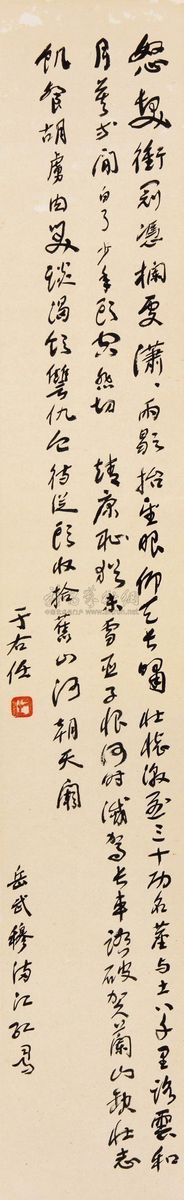 怒髮衝冠憑欄處瀟、雨歇抬望眼仰天長嘯壯懷激烈三十功名塵与土八千里路雲和
月莫等閒白了少年頭空悲切 靖康恥猶未雪臣子恨何時滅駕長車踏破賀蘭山缺壯志
飢餐胡虜肉笑談渴飲讐仇血待從頭收拾舊山河朝天闕
岳武穆滿江紅詞
于右任